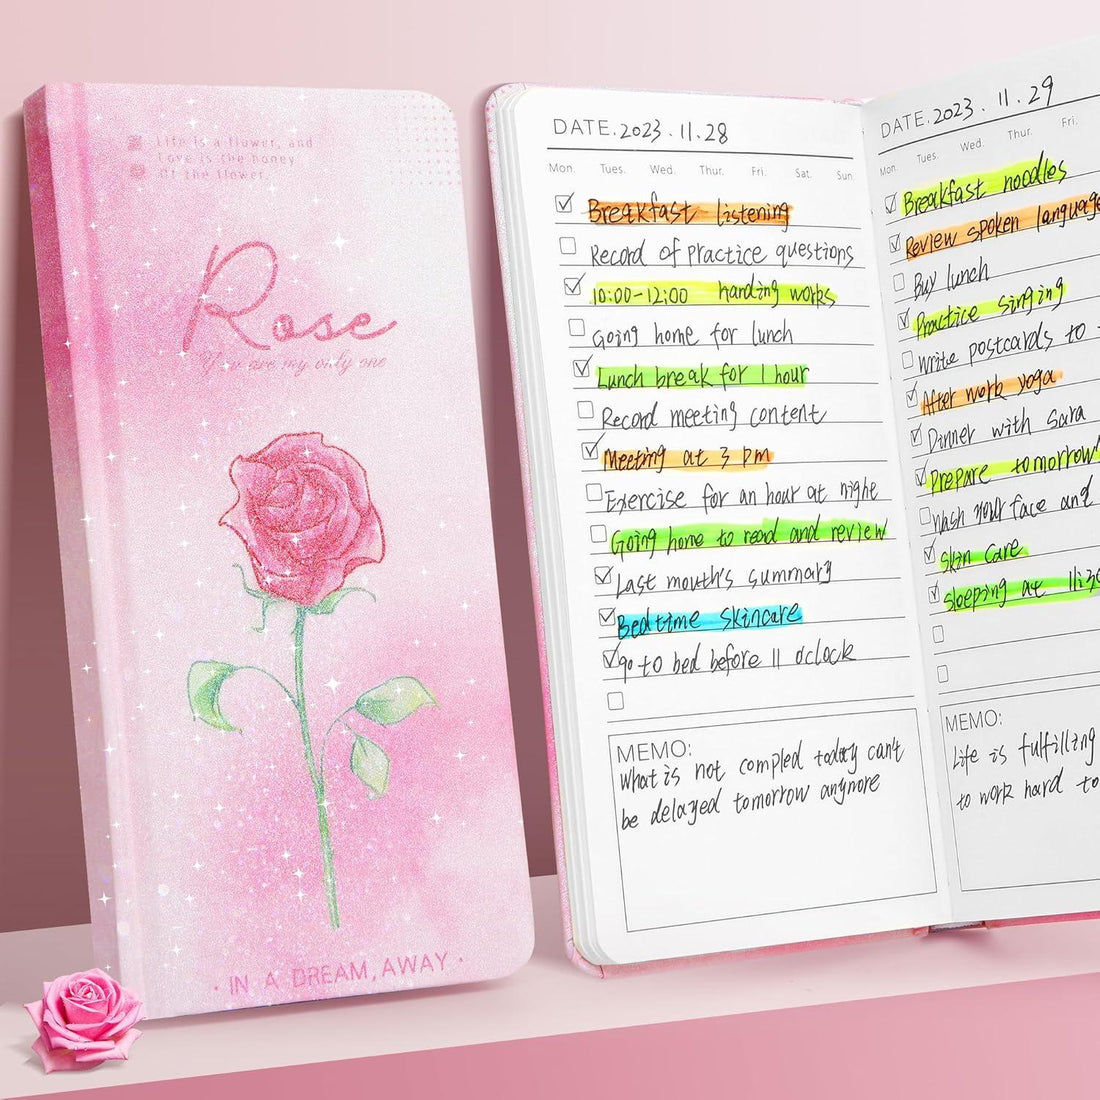 Life is a flower, and
Love is the honey
Of the flower.
Rose
You are my only one
· IN A DREAM, AWAY ·
DATE. 2023 . 11 . 28
Mon. Tues. Wed. Thur. Fri. Sat. Sun.
Breakfast listening
Record of practice questions
10:00-12:00 handing works
Going home for lunch
Lunch break for 1 hour
Record meeting content
Meeting at 3 pm
Exercise for an hour at night
Going home to read and review
Last mouth's summary
Bedtime skincare
go to bed before 11 o'clock
MEMO:
What is not compled today can't
be delayed tomorrow anymore
DATE. 2023 . 11 . 29
Mon. Tues. Wed. Thur. Fri.
Breakfast noodles
Review spoken language
Buy lunch
Practice singing
Write postcards to
After work yoga
Dinner with Sara
Prepare tomorrow'
Wash your face and
Skin care
Sleeping at 11:30
MEMO:
Life is fulfilling
to work hard to